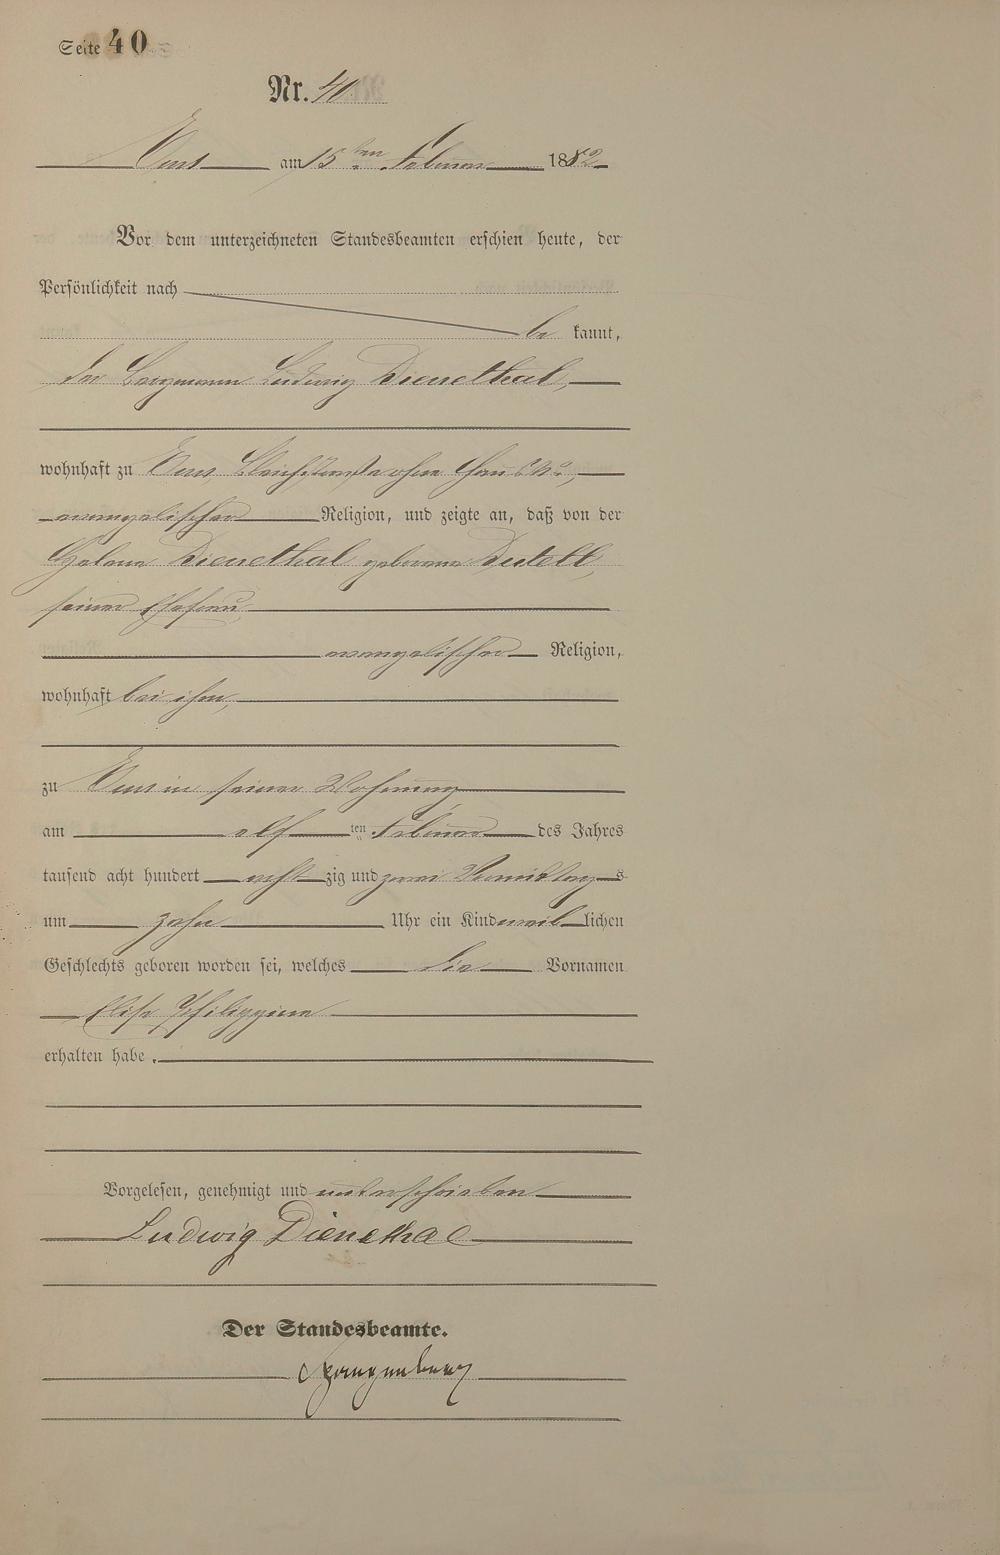 Seite 40
Nr. 40
Ems am 15ten Februar 1882
Vor dem unterzeichneten Standesbeamten erschien heute, der
Persönlichkeit nach
be kannt,
der Bergmann Ludwig Dienethal,
wohnhaft zu Ems, ohne Haus No,
evangelischer Religion, und zeigte an, daß von der
Helene Dienethal geborene Dutell,
seiner Ehefrau,
evangelischer Religion,
wohnhaft bei ihm,
zu Ems in seiner Wohnung
am elf ten Februar des Jahres
tausend acht hundert acht zig und zwei Vormittag s
um zehn Uhr ein Kind weib lichen
Geschlechts geboren worden sei, welches die Vornamen
Elise Philippine
erhalten habe.
Vorgelesen, genehmigt und unterschrieben
Ludwig Dienethal
Der Standesbeamte.
Spangenberg